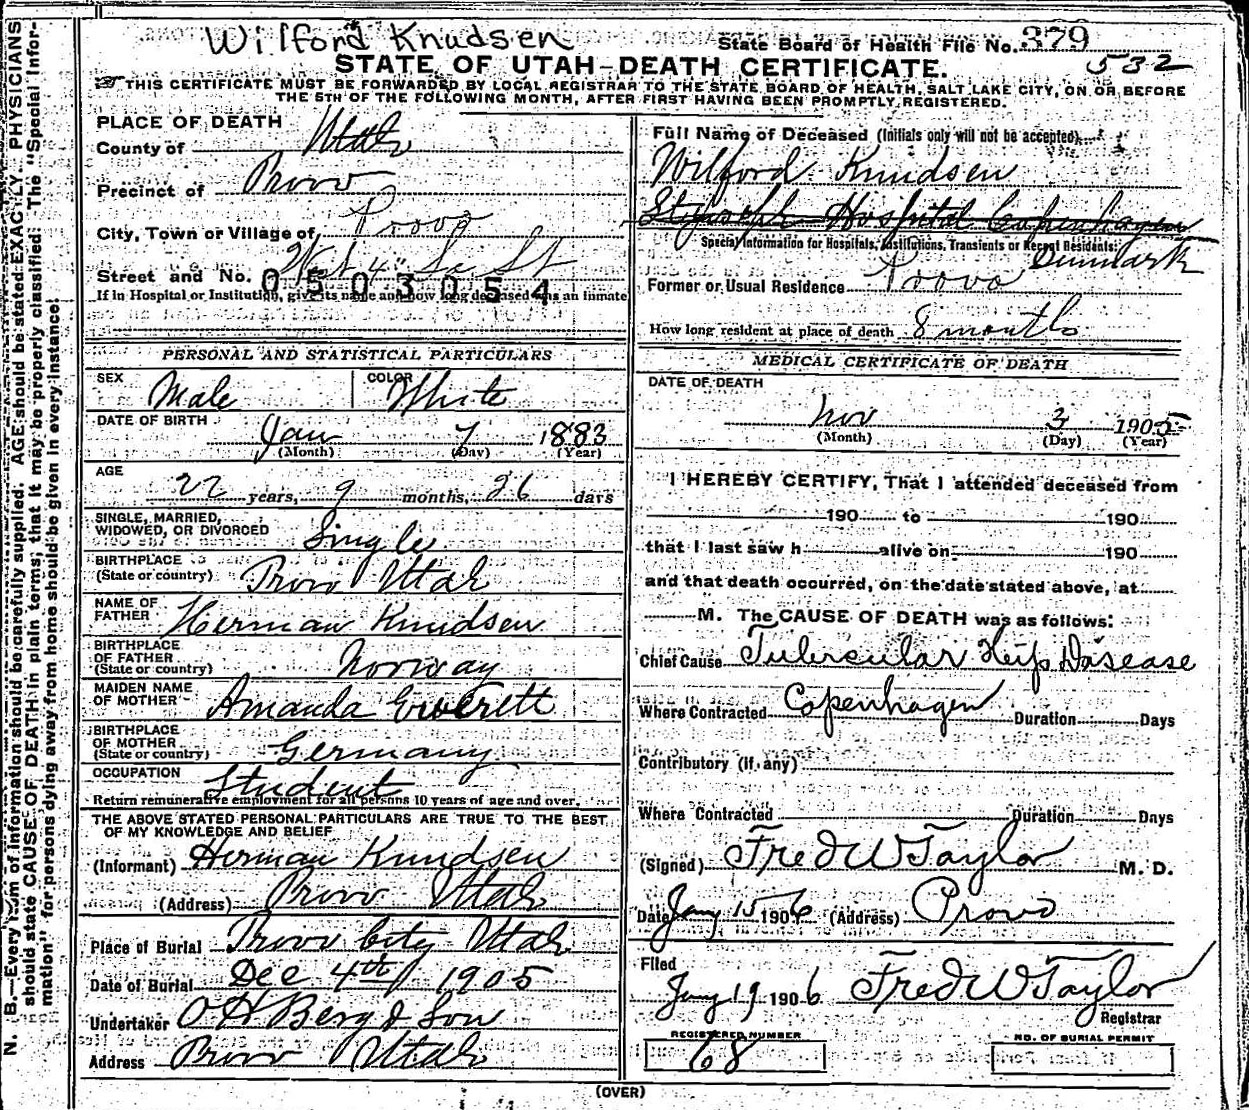 Wilford Knudsen
State Board of Health File No. 379
532
STATE OF UTAH—DEATH CERTIFICATE.
THIS CERTIFICATE MUST BE FORWARDED BY LOCAL REGISTRAR TO THE STATE BOARD OF HEALTH, SALT LAKE CITY, ON OR BEFORE
THE 5TH OF THE FOLLOWING MONTH, AFTER FIRST HAVING BEEN PROMPTLY REGISTERED.
PLACE OF DEATH
County of Utah
Precinct of Provo
City, Town or Village of Provo
Street and No. West 4th So St
0503054
If in Hospital or Institution, give its name and how long deceased was an inmate
PERSONAL AND STATISTICAL PARTICULARS
SEX Male COLOR White
DATE OF BIRTH Jan 7 1883
(Month) (Day) (Year)
AGE
22 years, 9 months, 26 days
SINGLE, MARRIED,
WIDOWED, OR DIVORCED Single
BIRTHPLACE
(State or country) Provo Utah
NAME OF
FATHER Herman Knudsen
BIRTHPLACE
OF FATHER
(State or country) Norway
MAIDEN NAME
OF MOTHER Amanda Everett
BIRTHPLACE
OF MOTHER
(State or country) Germany
OCCUPATION Student
Return remunerative employment for all persons 10 years of age and over.
THE ABOVE STATED PERSONAL PARTICULARS ARE TRUE TO THE BEST
OF MY KNOWLEDGE AND BELIEF
(Informant) Herman Knudsen
(Address) Provo Utah
Place of Burial Provo City Utah
Date of Burial Dec 4th 1905
Undertaker O H Berg & Son
Address Provo Utah
Full Name of Deceased (Initials only will not be accepted)
Wilford Knudsen
St Joseph Hospital Copenhagen
Special Information for Hospitals, Institutions, Transients or Recent Residents:
Dunmark
Former or Usual Residence Provo
How long resident at place of death 8 months
MEDICAL CERTIFICATE OF DEATH
DATE OF DEATH
Nov 3 1905
(Month) (Day) (Year)
I HEREBY CERTIFY, That I attended deceased from
190 to 190
that I last saw h alive on 190
and that death occurred, on the date stated above, at
M. The CAUSE OF DEATH was as follows:
Chief Cause Tubercular Hip Disease
Where Contracted Copenhagen Duration Days
Contributory (if any)
Where Contracted Duration Days
(Signed) Fred W Taylor M. D.
Date Jany 15 1906 (Address) Provo
Filed
Jany 19 1906 Fred W Taylor
Registrar
REGISTERED NUMBER
68
NO. OF BURIAL PERMIT
(OVER)
N. B.—Every item of information should be carefully supplied. AGE should be stated EXACTLY. PHYSICIANS
should state CAUSE OF DEATH in plain terms, that it may be properly classified. The "Special Infor-
mation" for persons dying away from home should be given in every instance.